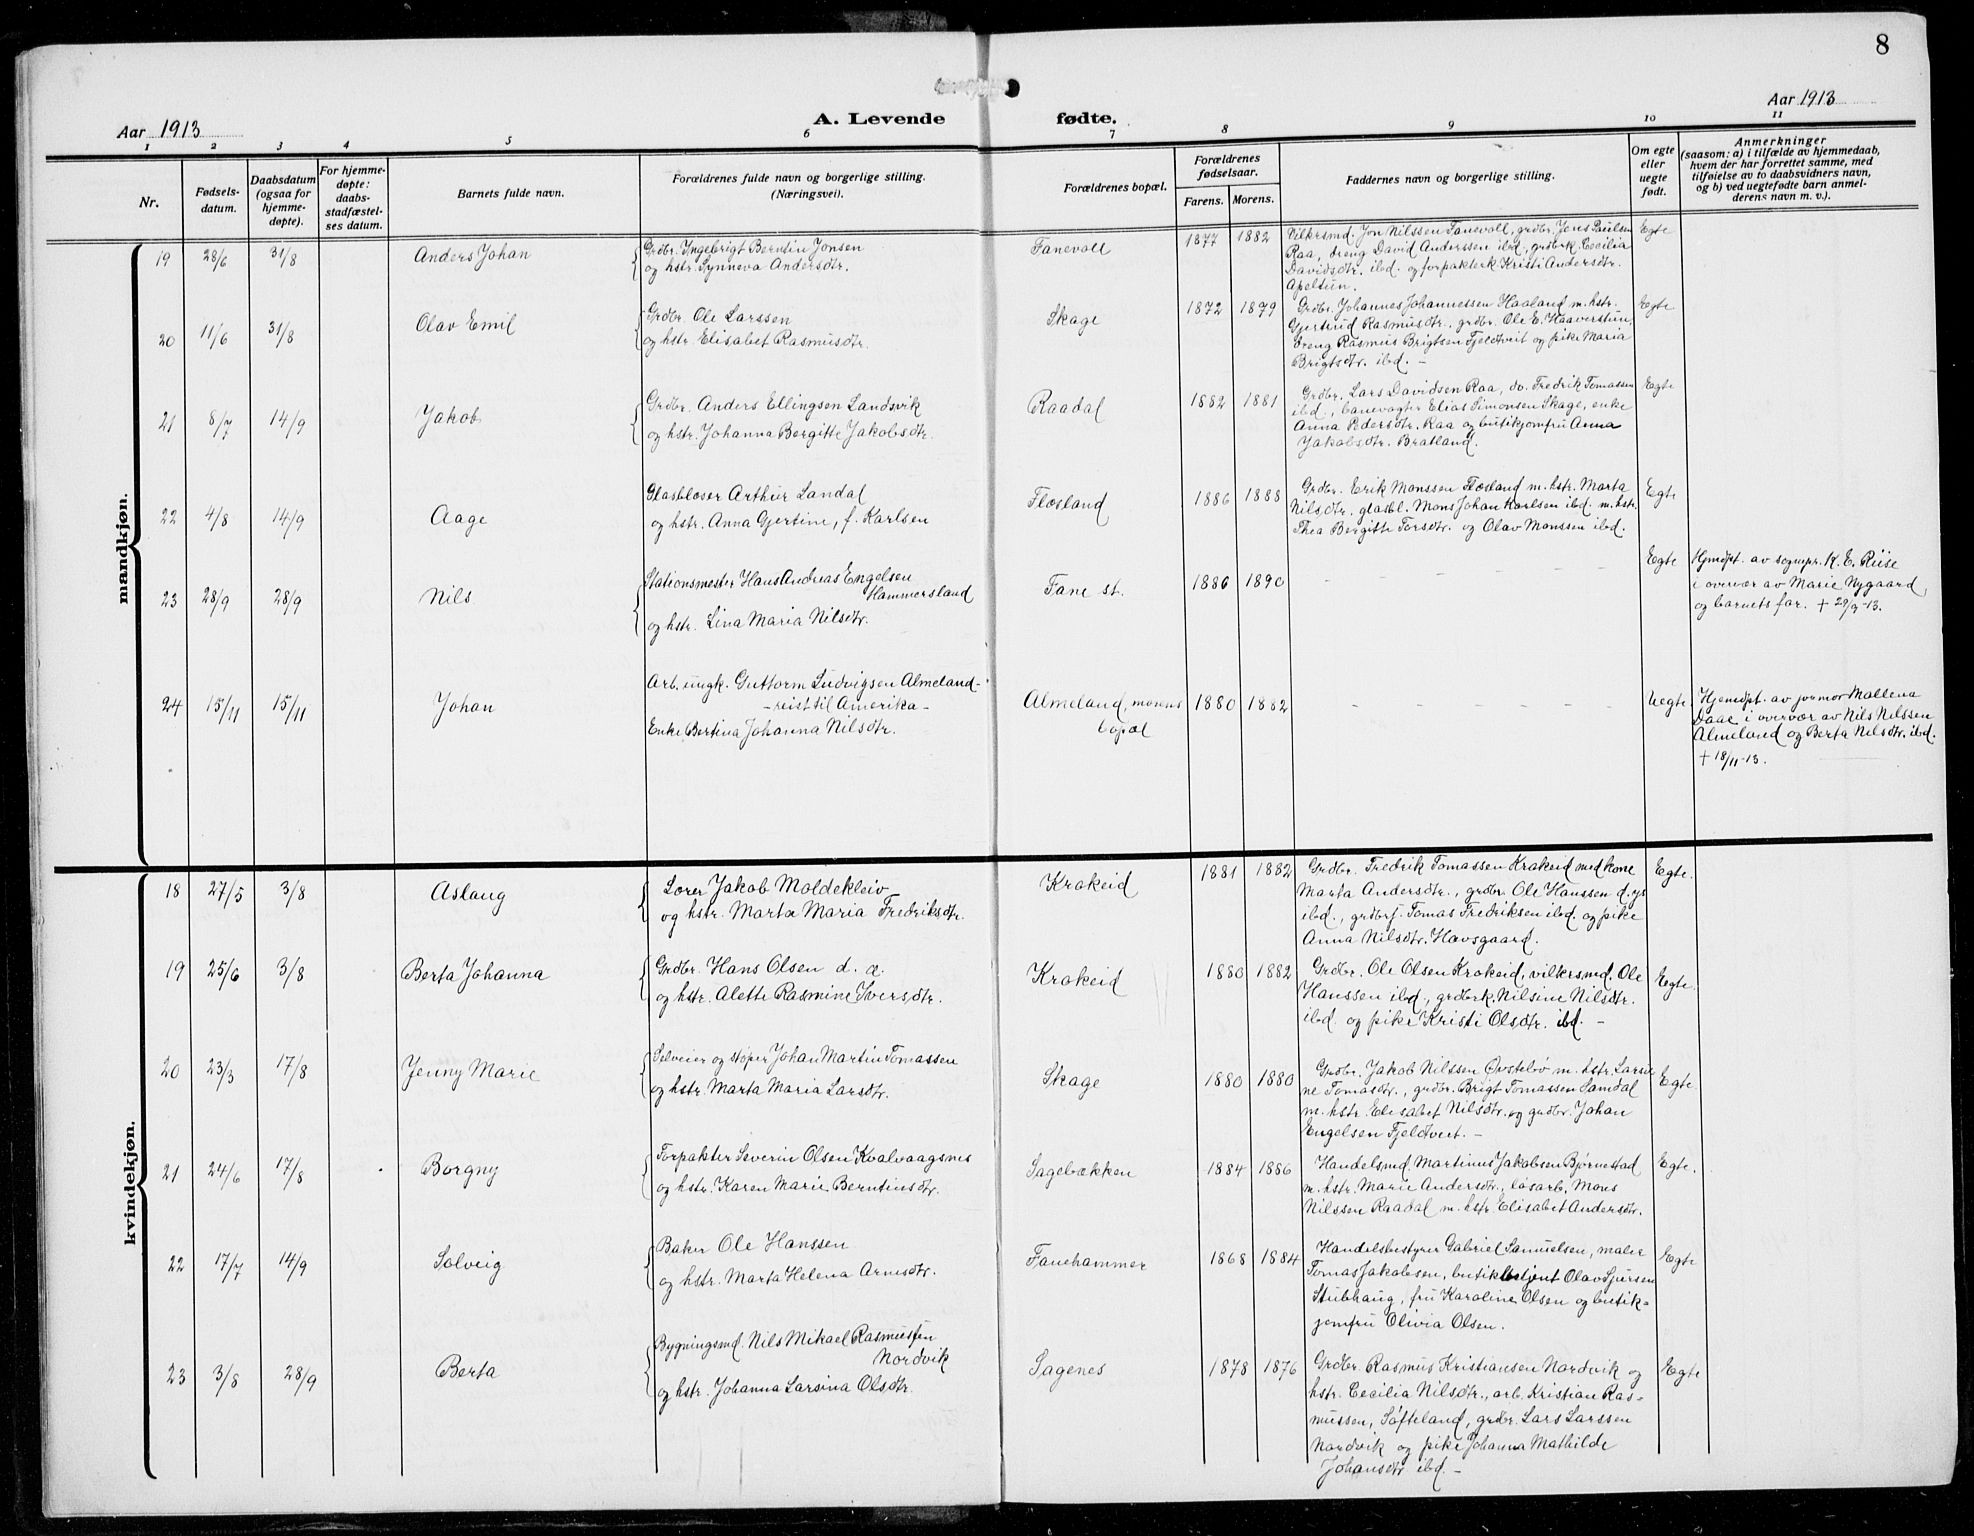 8
Aar 1913
A. Levende fødte.
Aar 1913
1 2 3 4 5 6 7 8 9 10 11
Nr.
Fødsels-
datum.
Daabsdatum
(ogsaa for
hjemme-
døpte).
For hjemme-
døpte:
daabs-
stadfæstel-
ses datum.
Barnets fulde navn.
Forældrenes fulde navn og borgerlige stilling.
(Næringsvei).
Forældrenes bopæl.
Forældrenes
fødselsaar.
Farens. Morens.
Faddernes navn og borgerlige stilling.
Om egte
eller
uegte
født.
Anmerkninger
(saasom: a) i tilfælde av hjemmedaab,
hvem der har forrettet samme, med
tilføielse av to daabsvidners navn,
og b) ved uegtefødte barn anmel-
derens navn m. v.).
mandkjøn.
19 28/6 31/8 Anders Johan
Grdbr. Ingebrigt Berntin Jonsen
og hstr. Synneva Andersdtr.
Fanevoll 1877 1882
Vilkrsmd. Jon Nilssen Fanevoll, grdbr. Jens Paulsen
Raa, dreng David Anderssen ibd., grdbrk. Cecilia
Davidsdtr. ibd. og forpakterk Kristi Andersdtr.
Apeltun.
Egte
20 11/6 31/8 Olav Emil
Grdbr. Ole Larssen
og hstr. Elisabet Rasmusdtr.
Skage 1872 1879
Grdbr. Johannes Johannessen Haaland m. hstr.
Gjertrud Rasmusdtr., grdbr. Ole E. Haaverstun,
Dreng Rasmus Brigtsen Fjeldtveit og pike Maria
Brigtsdtr. ibd. -
Egte
21 8/7 14/9 Jakob
Grdbr. Anders Ellingsen Landsvik
og hstr. Johanna Bergitte Jakobsdtr.
Raadal 1882 1881
Grdbr. Lars Davidsen Raa, do. Fredrik Tomassen
ibd., banevogter Elias Simonsen Skage, enke
Anna Pedersdtr. Raa og butikjomfru Anna
Jakobsdtr. Bratland.
Egte
22 4/8 14/9 Aage
Glasblæser Arthur Landal
og hstr. Anna Gjertine, f. Karlsen
Flesland 1886 1888
Grdbr. Erik Monssen Flesland m. hstr. Marta
Nilsdtr. glasbl. Mons Johan Karlsen ibd. m. hstr.
Thea Bergitte Torsdtr. og Olav Monssen ibd.
Egte
23 28/9 28/9 Nils
Stationsmester Hans Andreas Engelsen
Hammersland
og hstr. Lina Maria Nilsdtr.
Fane st. 1886 1890
- - - - - -
Egte
Hjmdpt. av sognepr. K. E. Riise
i overvær av Marie Nygaard
og barnets far. + 29/9-13.
24 15/11 15/11 Johan
Arb. ungk. Guttorm Ludvigsen Almeland-
- reist til Amerika -
Enke Bertina Johanna Nilsdtr.
Almeland, morens
bopæl
1880 1882
- - - - - -
Uegte
Hjemdpt. av jormor Mallena
Daae i overvær av Nils Nilssen
Almeland og Berta Nilsdtr. ibd.
+ 18/11-13.
kvindekjøn.
18 27/5 3/8 Aslaug
Lærer Jakob Moldekleiv
og hstr. Marta Maria Fredriksdtr.
Krokeid 1881 1882
Grdbr. Fredrik Tomassen Krokeid med kone
Marta Andersdtr., grdbr. Ole Hanssen d. ys
ibd., grdbrs. Tomas Fredriksen ibd. og pike
Anna Nilsdtr. Havsgaard.
Egte.
19 25/6 3/8 Berta Johanna
Grdbr. Hans Olsen d. æ.
og hstr. Alette Rasmine Iversdtr.
Krokeid 1880 1882
Grdbr. Ole Olsen Krokeid, vilkrsmd. Ole
Hanssen ibd., grdbrk. Nilsine Nilsdtr.
ibd. og pike Kristi Olsdtr. ibd. -
Egte.
20 23/3 17/8 Jenny Marie
Selveier og støper Johan Martin Tomassen
og hstr. Marta Maria Larsdtr.
Skage 1880 1880
Grdbr. Jakob Nilssen Øvstebø m. hstr. Larsi-
ne Tomasdtr., grdbr. Brigt Tomassen Samdal
m. hstr. Elisabet Nilsdtr. og grdbr. Johan
Engelsen Fjeldtveit. -
Egte.
21 24/6 17/8 Borgny
Forpakter Severin Olsen Kvalvaagsnes
og hstr. Karen Marie Berntinsdtr.
Sagebækken 1884 1886
Handelsmd. Martinus Jakobsen Bjørnestad
m. hstr. Marie Andersdtr., løsarb. Mons
Nilssen Raadal m. hstr. Elisabet Andersdtr.
Egte.
22 17/7 14/9 Solveig
Baker Ole Hanssen
og hstr. Marta Helena Arnesdtr.
Fanehammer 1868 1884
Handelsbestyrer Gabriel Samuelsen, maler
Tomas Jakobsen, butikbetjent Olav Sjursen
Stubhaug, fru Karoline Olsen og butik-
jomfru Olivia Olsen.
Egte
23 3/8 28/9 Berta
Bygningsmd. Nils Mikael Rasmussen
Nordvik
og hstr. Johanna Larsina Olsdtr.
Sagenes 1878 1876
Grdbr. Rasmus Kristiansen Nordvik og
hstr. Cecilia Nilsdtr., arb. Kristian Ras-
mussen, Søfteland, grdbr. Lars Larssen
Nordvik og pike Johanna Mathilde
Johansdtr ibd. -
Egte